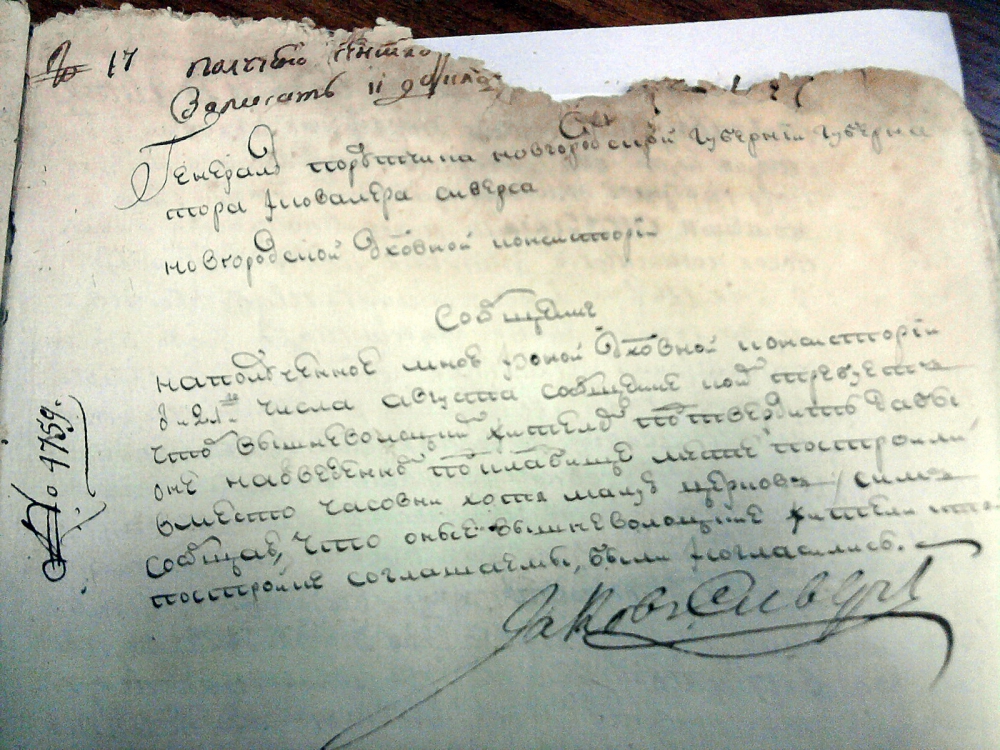 № 17 получено
Записать и
От
Генерала порутчика новгородской губернии губерна
тора и ковалера сиверса
новгородской духовной консистории
Сообщение
на полученное мною из оной духовной консистории
в 21 числа августа сообщение под
что вышневолоцких жителей подтвердить дабы
оне на отведенном кладбище построили
вместо часовни хотя малую церковь / сим
сообщаю, что оные вышневолоцкие жители
постройке соглашаемы были и согласились.
Яковъ Сиверсъ
№ 4759.